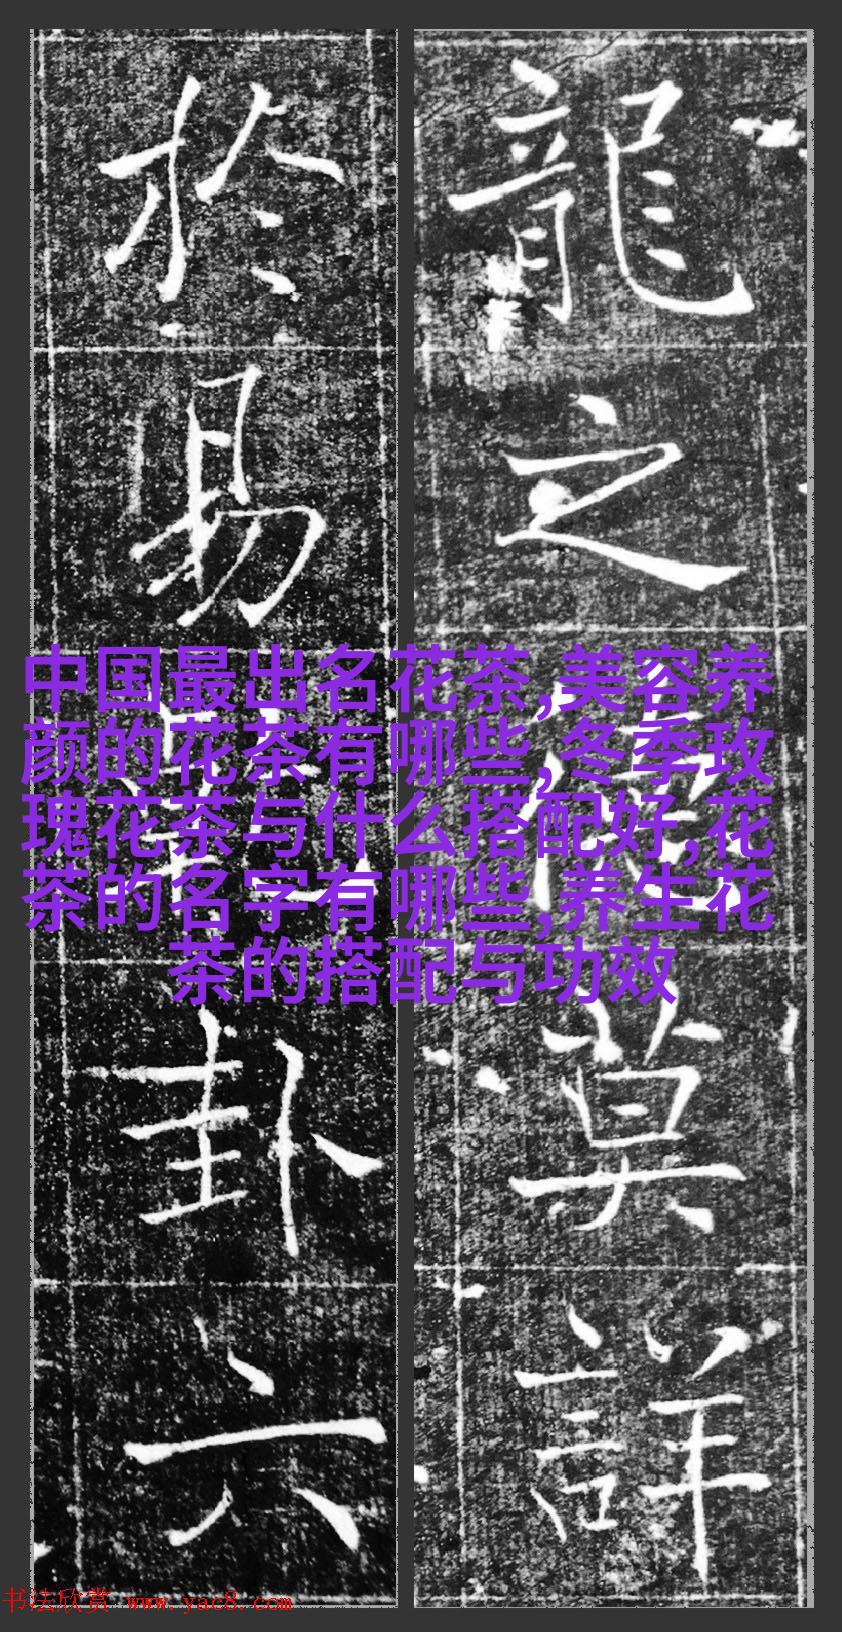 龍之
莫詳
於易
卦六
中国最出名花茶,美容养
颜的花茶有哪些,冬季玫
瑰花茶与什么搭配好,花
茶的名字有哪些,养生花
茶的搭配与功效
书法欣赏 www.yac8.com